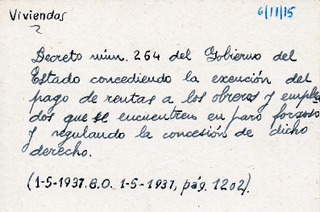 Viviendas
6/11/15
Decreto núm. 264 del Gobierno del
Estado concediendo la exención del
pago de rentas a los obreros y emplea
dos que se encuentren en paro forzoso
y regulando la concesión de dicho
derecho.
(1-5-1937. B.O. 1-5-1937, pág. 1202).